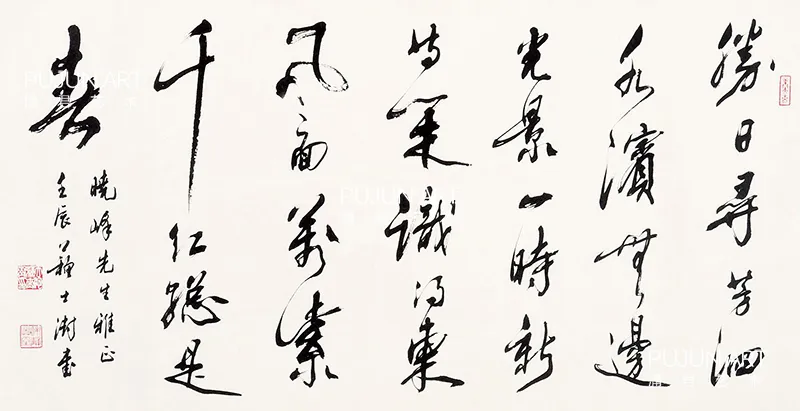 勝日尋芳泗
水濱無邊
光景一時新
等閑識得東
風面萬紫
千紅總是
春
曉峰先生雅正
壬辰蘇士澍書
PUJUN ART
PUJUN ART
PUJUN ART